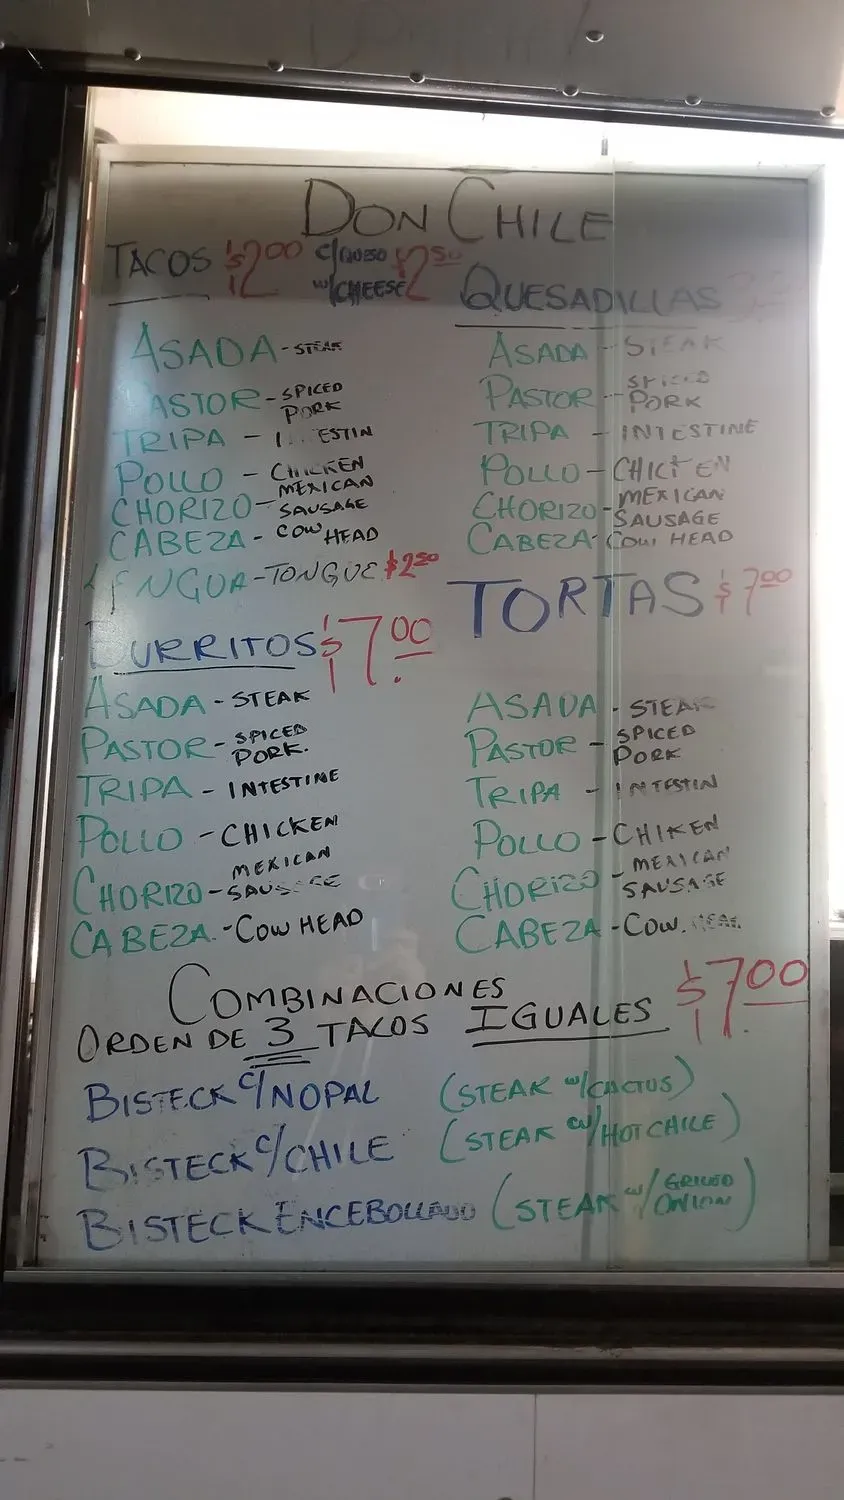 DON CHILE
TACOS $2.00 C/QUESO W/CHEESE $2.50
ASADA - STEAK
PASTOR - SPICED PORK
TRIPA - I ESTIN
POLLO - CHICKEN
CHORIZO - MEXICAN SAUSAGE
CABEZA - COW HEAD
LENGUA - TONGUE $2.50
BURRITOS $7.00
ASADA - STEAK
PASTOR - SPICED PORK.
TRIPA - INTESTINE
POLLO - CHICKEN
CHORIZO - MEXICAN SAUSAGE
CABEZA. - COW HEAD
QUESADILLAS
ASADA - STEAK
PASTOR - SPICED PORK
TRIPA - INTESTINE
POLLO - CHICKEN
CHORIZO - MEXICAN SAUSAGE
CABEZA - COW HEAD
TORTAS $7.00
ASADA - STEAK
PASTOR - SPICED PORK
TRIPA - INTESTIN
POLLO - CHIKEN
CHORIZO - MEXICAN SAUSAGE
CABEZA - COW.
COMBINACIONES
ORDEN DE 3 TACOS IGUALES $7.00
BISTECK C/NOPAL (STEAK W/CACTUS)
BISTECK C/CHILE (STEAK W/HOT CHILE)
BISTECK ENCEBOLLADO (STEAK W/GRILED ONION)